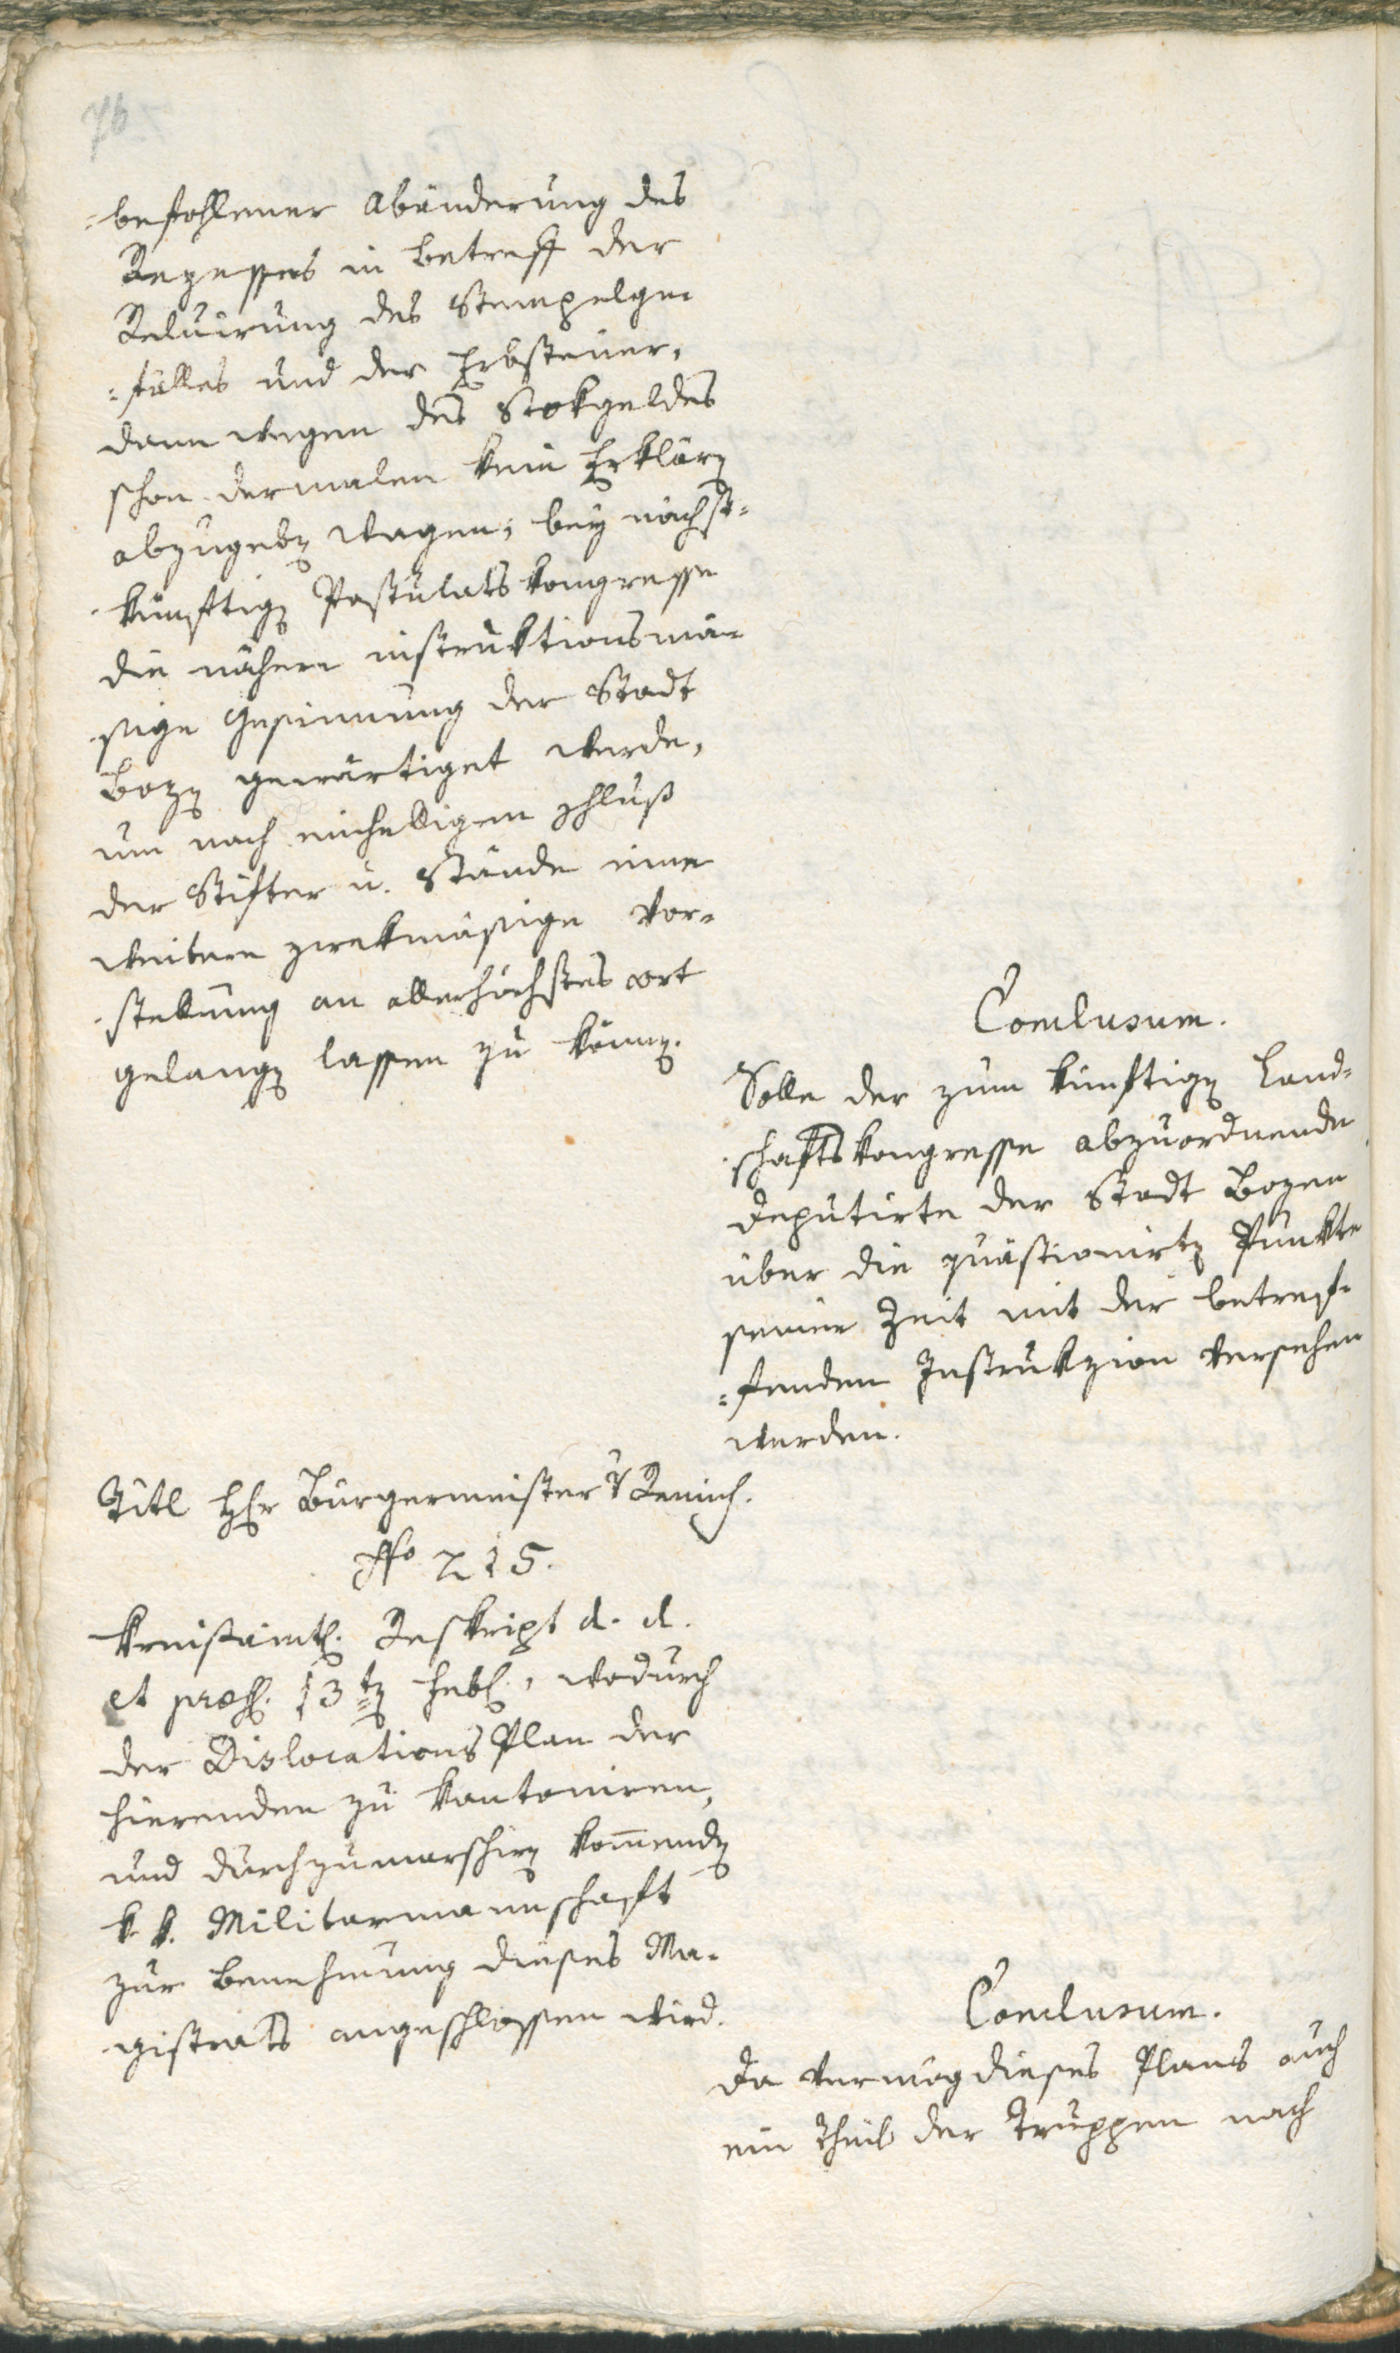 76
-befohlener Abänderung des
Rezesses in Betreff der
Reluirung des Stempelge-
-fälles und der Erbsteuer,
dann wegen des Stokgeldes
schon dermalen kein Erklärg
abzugebn wagen; bey nächst-
-künftign Postulatskongresse
die nähere instruktionsmä-
-ssige Gesinnung der Stadt
Bozn gewärtiget werde,
um nach einhelligem Schluß
der Stifter u. Stände eine
weitere zwekmäßige Vor-
-stellung an allerhöchstes Ort
gelangn lassen zu könn.
Conclusum.
Solle der zum künftign Land-
-schaftskongresse abzuordnende
Deputirte der Stadt Bozen
über die quästionirtn Punkte
seiner Zeit mit der betref-
-fenden Instrukzion versehen
werden.
Titl Hr Bürgermeister v Remich.
Nro 215.
Kreisämtl. Reskript d. d.
et præs. 13tn hebl., wodurch
der Dislocations Plan der
hierenden zu kantoniren,
und durchzumarschirn kommendn
k. k. Militarmannschaft
zur Benehmung dieses Ma-
-gistrats angeschlossen wird.
Conclusum.
Da vermög dieses Plans auch
ein Theil der Truppen nach